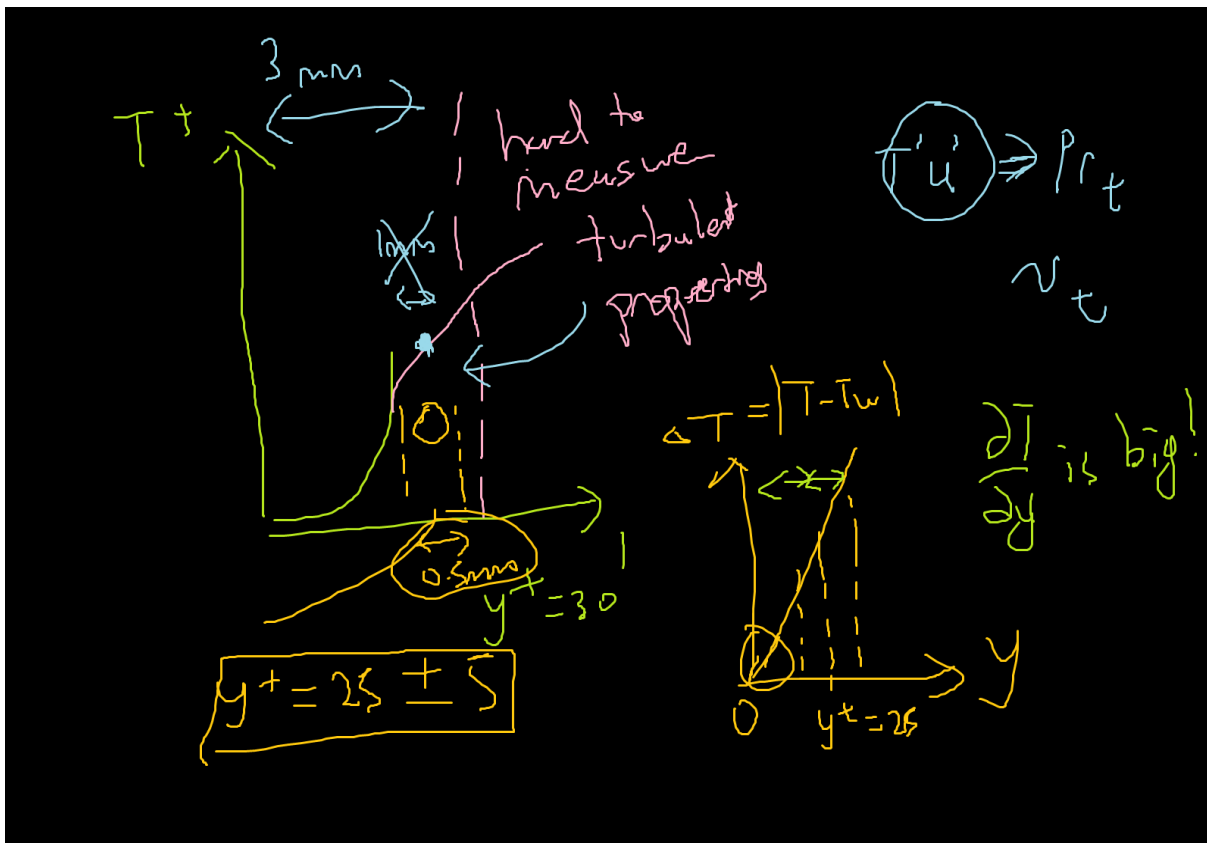 3 mm
T⁺
hard to
measure
turbulent
properties
1mm
T'u' ⇒ Pr_t
ν_t
0.5mm
y⁺ = 30
y⁺ = 25 ± 5
ΔT = |T - Tw|
0
y⁺ = 25
y
∂T/∂y is big!